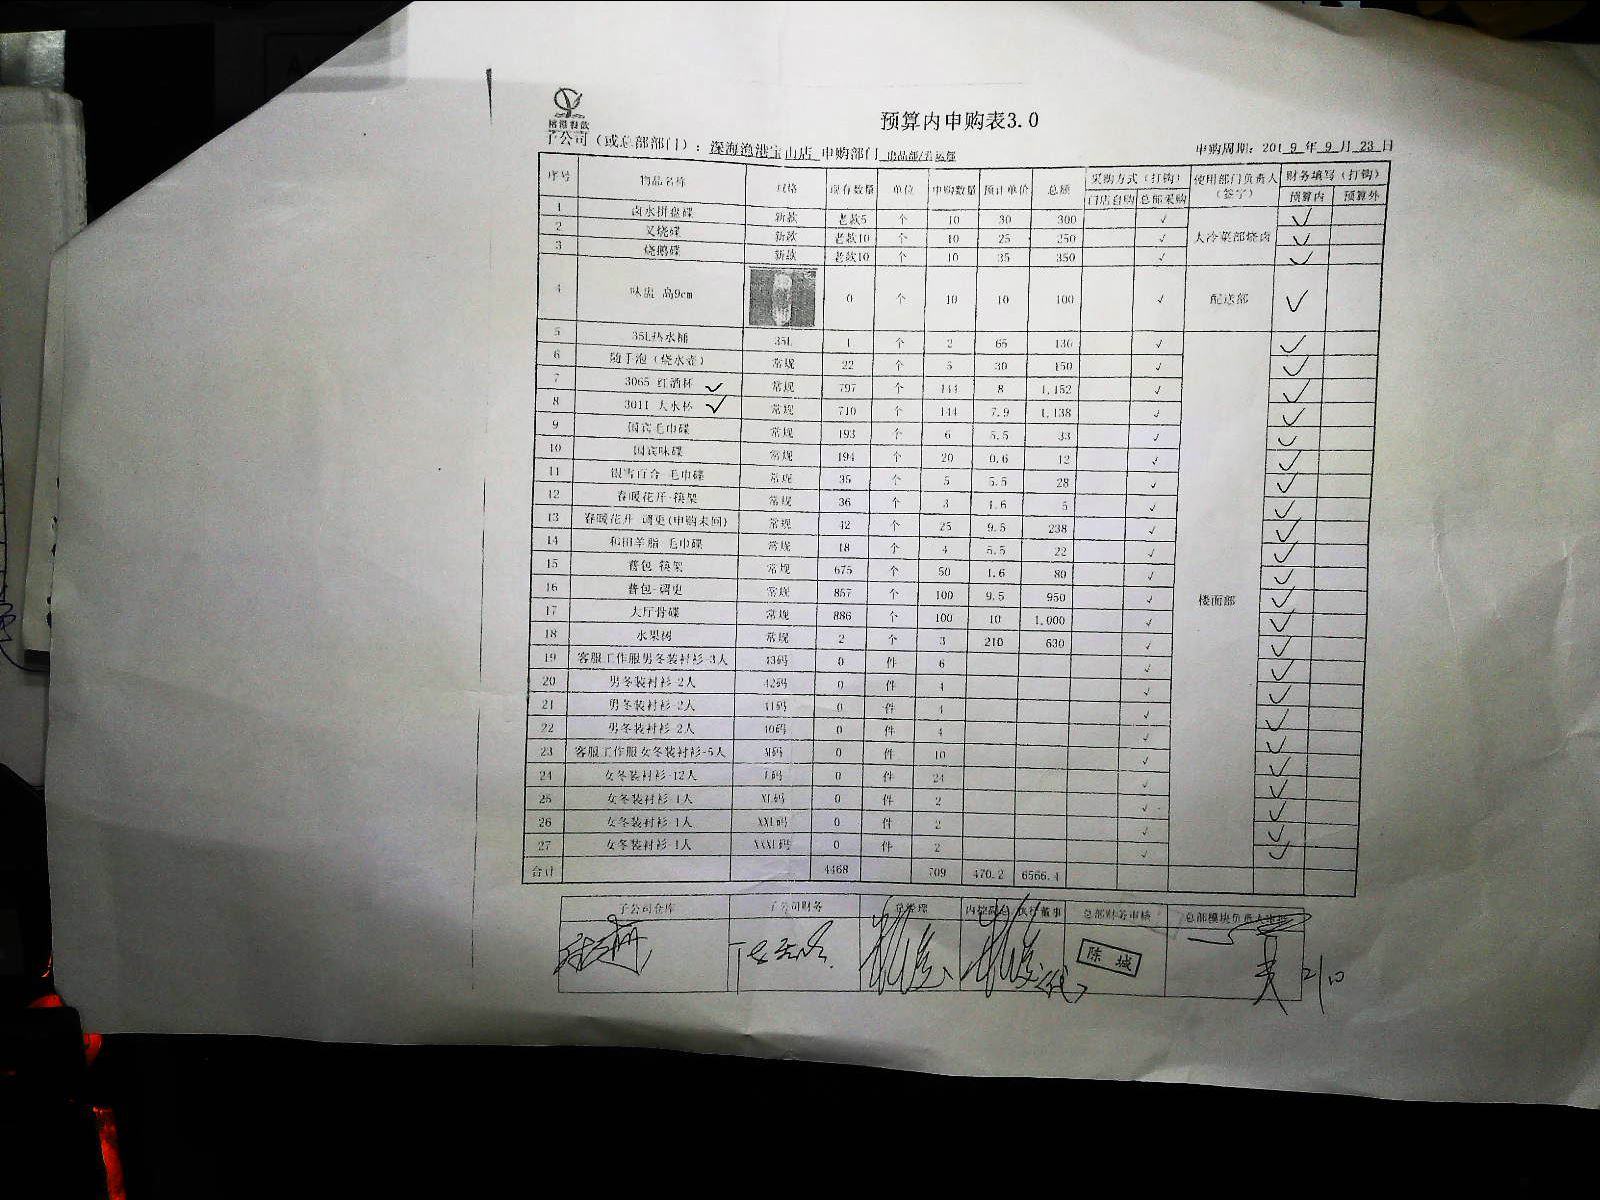 预算内申购表3.0
子公司（或总部部门）：深海渔港宝山店 申购部门 申购周期：2019年9月23日
序号 物品名称 规格 现存数量 单位 申购数量 预计单价 总额 采购方式（打钩） 使用部门负责人（签字） 财务填写（打钩）
门店自购 总部采购 预算内 预算外
1 卤水拼盘碟 新款 老款5 个 10 30 300 √ √
2 叉烧碟 新款 老款10 个 10 25 250 √ 大冷菜部烧卤 √
3 烧鹅碟 新款 老款10 个 10 35 350 √ √
4 味盅 高9cm 0 个 10 10 100 √ 配送部 √
5 35L热水桶 35L 1 个 2 65 130 √ √
6 随手泡（烧水壶） 常规 22 个 5 30 150 √ √
7 3065 红酒杯 √ 常规 797 个 144 8 1,152 √ √
8 3011 大水杯 √ 常规 710 个 144 7.9 1,138 √ √
9 国宾毛巾碟 常规 193 个 6 5.5 33 √ √
10 国宾味碟 常规 194 个 20 0.6 12 √ √
11 银雪百合-毛巾碟 常规 35 个 5 5.5 28 √ √
12 春暖花开-筷架 常规 36 个 3 1.6 5 √ √
13 春暖花开-调更(申购未回) 常规 42 个 25 9.5 238 √ √
14 和田羊脂-毛巾碟 常规 18 个 4 5.5 22 √ √
15 普包-筷架 常规 675 个 50 1.6 80 √ √
16 普包-调更 常规 857 个 100 9.5 950 √ 楼面部 √
17 大厅骨碟 常规 886 个 100 10 1,000 √ √
18 水果树 常规 2 个 3 210 630 √ √
19 客服工作服男冬装衬衫-3人 43码 0 件 6 √ √
20 男冬装衬衫-2人 42码 0 件 4 √ √
21 男冬装衬衫-2人 41码 0 件 4 √ √
22 男冬装衬衫-2人 40码 0 件 4 √ √
23 客服工作服女冬装衬衫-5人 M码 0 件 10 √ √
24 女冬装衬衫-12人 L码 0 件 24 √ √
25 女冬装衬衫-1人 XL码 0 件 2 √ √
26 女冬装衬衫-1人 XXL码 0 件 2 √ √
27 女冬装衬衫-1人 XXXL码 0 件 2 √ √
合计 4468 709 470.2 6566.4
子公司仓库 子公司财务 总经理 执行董事 总部财务审核 总部模块负责人审批
陈城
2/10